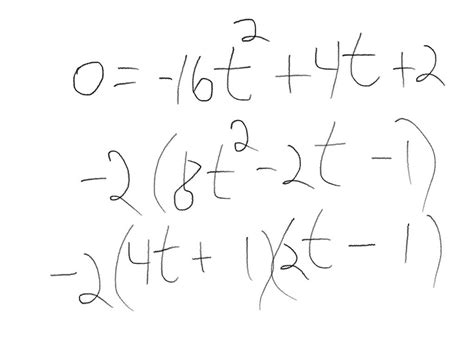 0 = -16t² + 4t + 2
-2(8t² - 2t - 1)
-2(4t + 1)(2t - 1)